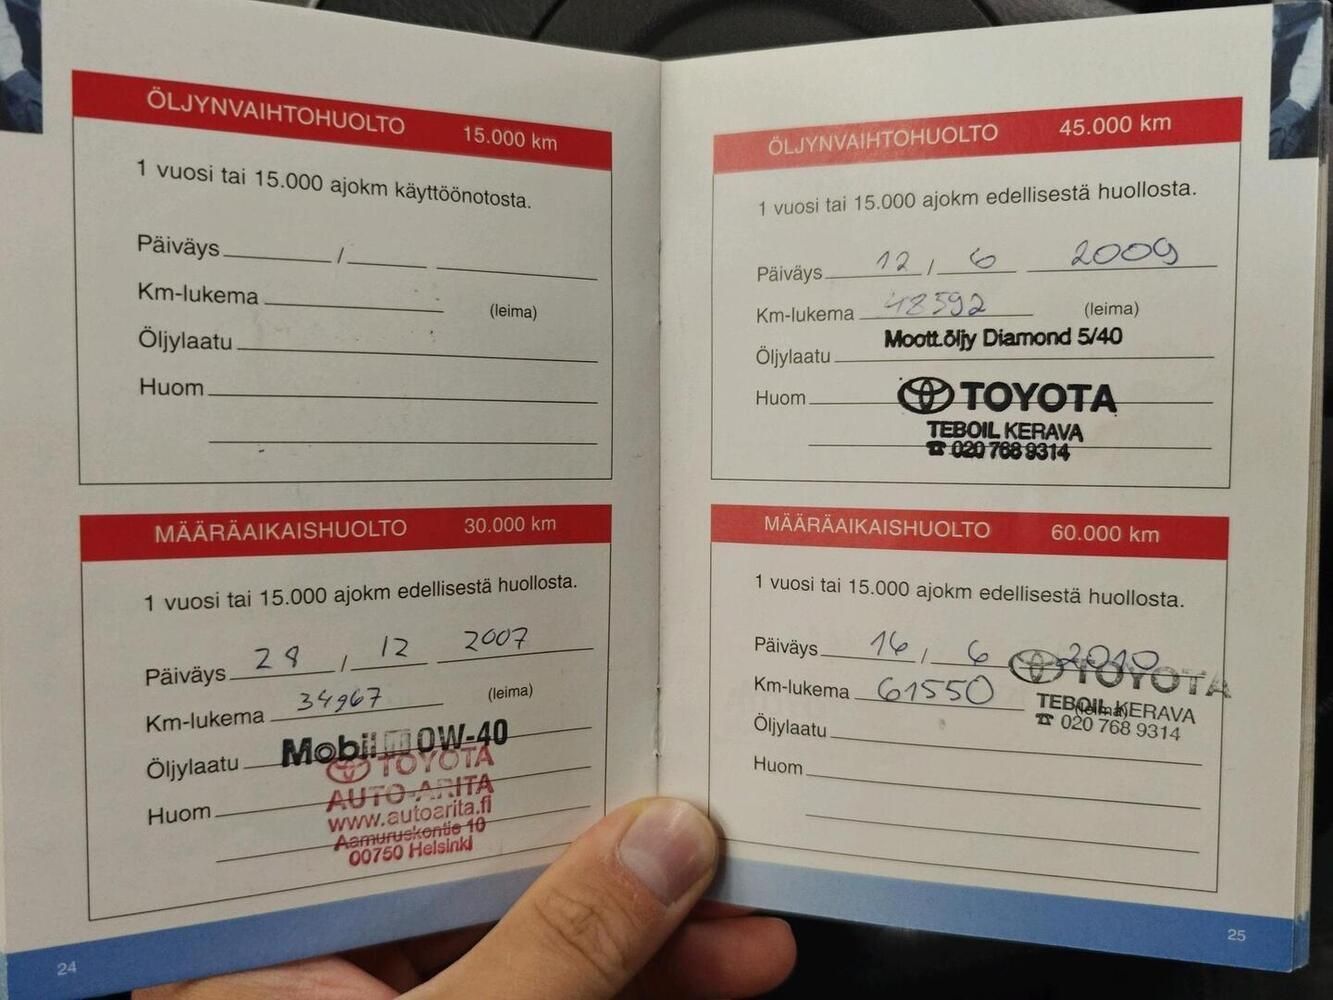 ÖLJYNVAIHTOHUOLTO 15.000 km
1 vuosi tai 15.000 ajokm käyttöönotosta.
Päiväys / 
Km-lukema (leima)
Öljylaatu
Huom
MÄÄRÄAIKAISHUOLTO 30.000 km
1 vuosi tai 15.000 ajokm edellisestä huollosta.
Päiväys 28 / 12 2007
Km-lukema 34967 (leima)
Öljylaatu Mobil 0W-40
TOYOTA
Huom AUTO-ARITA
www.autoarita.fi
Aamuruskontie 10
00750 Helsinki
24
ÖLJYNVAIHTOHUOLTO 45.000 km
1 vuosi tai 15.000 ajokm edellisestä huollosta.
Päiväys 12 / 6 2009
Km-lukema 48592 (leima)
Moott.öljy Diamond 5/40
Öljylaatu
Huom TOYOTA
TEBOIL KERAVA
☎ 020 768 9314
MÄÄRÄAIKAISHUOLTO 60.000 km
1 vuosi tai 15.000 ajokm edellisestä huollosta.
Päiväys 16 / 6 2010
TOYOTA
Km-lukema 61550 (leima)
TEBOIL KERAVA
☎ 020 768 9314
Öljylaatu
Huom
25